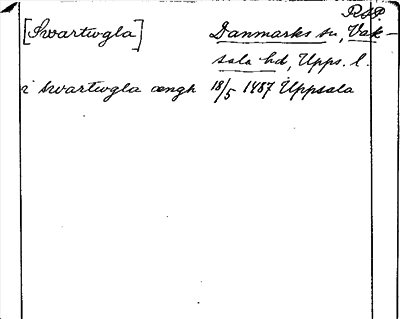 R.S.P.
[Swartwgla] Danmarks sn, Vak-
sala hd, Upps. l.
i swartwgla ængh 18/5 1487 Uppsala